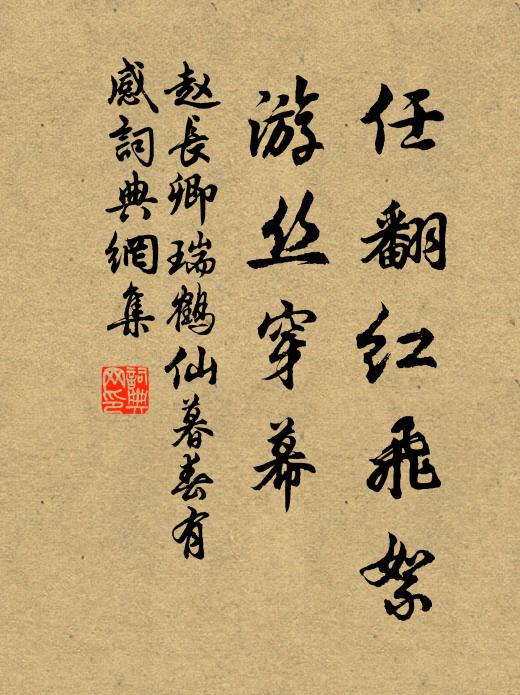 任翻红飛絮
游丝穿幕
赵長卿瑞鶴仙暮春有
感詞典網集
詞典网印